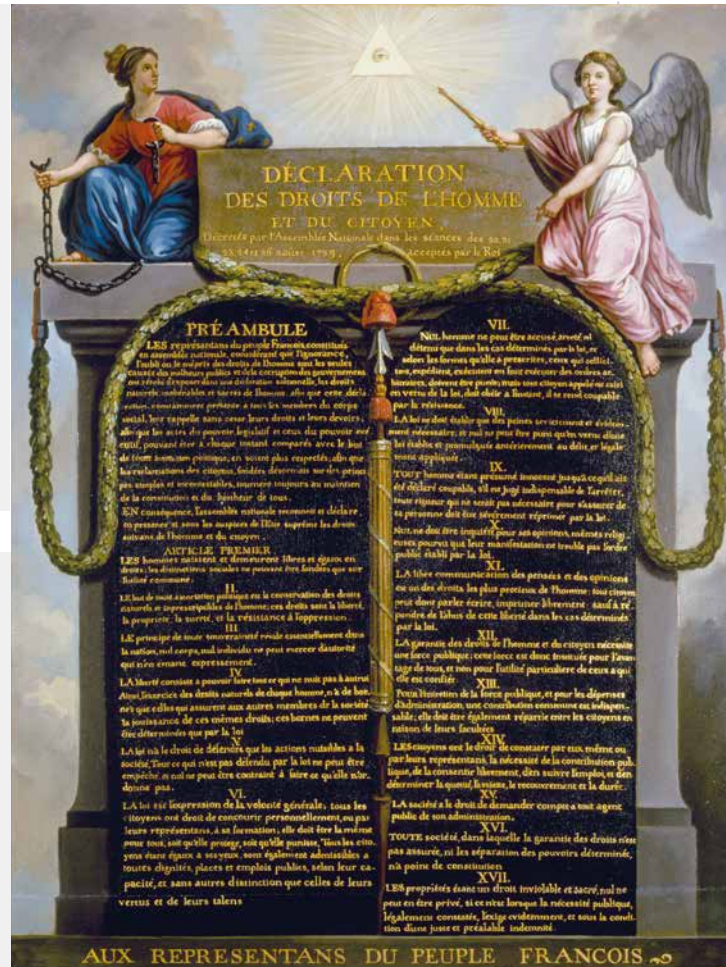 DÉCLARATION
DES DROITS DE L'HOMME
ET DU CITOYEN,
Décretés par l'Assemblée Nationale dans les séances des 20, 21
23, 24 et 26 août 1789, acceptés par le Roi
PRÉAMBULE
LES représentans du peuple François, constitués
en assemblée nationale, considérant que l'ignorance,
l'oubli ou le mépris des droits de l'homme sont les seules
causes des malheurs publics et de la corruption des gouvernemens
ont résolu d'exposer dans une déclaration solemnelle, les droits
naturels, inaliénables et sacrés de l'homme; afin que cette décla
ration, constamment présente à tous les membres du corps
social, leur rappelle sans cesse leurs droits et leurs devoirs;
afin que les actes du pouvoir législatif et ceux du pouvoir exé
cutif, pouvant être à chaque instant comparés avec le but
de toute institution politique, en soient plus respectés; afin que
les réclamations des citoyens, fondées désormais sur des princi
pes simples et incontestables, tournent toujours au maintien
de la constitution et du bonheur de tous.
EN conséquence, l'assemblée nationale reconnoit et déclare,
en presence et sous les auspices de l'Etre suprême les droits
suivans de l'homme et du citoyen.
ARTICLE PREMIER
LES hommes naissent et demeurent libres et égaux en
droits; les distinctions sociales ne peuvent être fondées que sur
l'utilité commune.
II.
LE but de toute association politique est la conservation des droits
naturels et imprescriptibles de l'homme; ces droits sont la liberté,
la propriété, la sureté, et la résistance à l'oppression.
III
LE principe de toute souveraineté réside essentiellement dans
la nation, nul corps, nul individu ne peut exercer d'autorité
qui n'en émane expressement.
IV
LA liberté consiste a pouvoir faire tout ce qui ne nuit pas à autrui
Ainsi, l'exercice des droits naturels de chaque homme, n'a de bor-
nes que celles qui assurent aux autres membres de la société
la jouissance de ces mêmes droits; ces bornes ne peuvent
être déterminées que par la loi
V.
LA loi n'a le droit de défendre que les actions nuisibles a la
société. Tout ce qui n'est pas défendu par la loi ne peut être
empêché, et nul ne peut être contraint à faire ce qu'elle n'or-
donne pas.
VI.
LA loi est l'expression de la volonté générale; tous les
citoyens ont droit de concourir personnellement, ou par
leurs représentans, à sa formation; elle doit être la même
pour tous, soit qu'elle protege, soit qu'elle punisse. Tous les cito
yens étant égaux à ses yeux, sont également admissibles a
toutes dignités, places et emplois publics, selon leur ca-
pacité, et sans autres distinction que celles de leurs
vertus et de leurs talens
VII.
NUL homme ne peut être accusé, arreté ni
détenu que dans les cas déterminés par la loi, et
selon les formes qu'elle à prescrites, ceux qui sollici-
tent, expédient, exécutent ou font exécuter des ordres ar-
bitraires, doivent être punis; mais tout citoyen appelé ou saisi
en vertu de la loi, doit obéir a l'instant, il se rend coupable
par la résistance.
VIII.
LA loi ne doit établir que des peines strictement et évidem-
ment nécessaire, et nul ne peut être puni qu'en vertu d'une
loi établie et promulguée antérieurement au délit, et légale-
ment appliquée.
IX.
TOUT homme étant présumé innocent jusqu'à ce qu'il ait
été déclaré coupable, s'il est jugé indispensable de l'arrêter,
toute rigueur qui ne serait pas nécessaire pour s'assurer de
sa personne doit être sévèrement réprimée par la loi.
X.
NUL ne doit être inquiété pour ses opinions, mêmes religi
euses pourvu que leur manifestation ne trouble pas l'ordre
public établi par la loi.
XI.
LA libre communication des pensées et des opinions
est un des droits les plus précieux de l'homme; tout citoyen
peut donc parler écrire, imprimer librement: sauf à ré
pondre de l'abus de cette liberté dans les cas déterminés
par la loi.
XII.
LA garantie des droits de l'homme et du citoyen nécessite
une force publique; cette force est donc instituée pour l'avan-
tage de tous, et non pour l'utilité particuliere de ceux a qui
elle est confiée.
XIII.
POUR l'entretien de la force publique, et pour les dépenses
d'administration, une contribution commune est indispen-
sable; elle doit être également répartie entre les citoyens en
raison de leurs facultées
XIV.
LES citoyens ont le droit de constater par eux même ou
par leurs représentans, la nécessité de la contribution pub-
lique, de la consentir librement, d'en suivre l'emploi, et d'en
déterminer la quotité, l'assiette, le recouvrement et la durée.
XV.
LA société a le droit de demander compte a tout agent
public de son administration.
XVI.
TOUTE société, dans laquelle la garantie des droits n'est
pas assurée, ni les séparation des pouvoirs déterminée,
n'a point de constitution
XVII.
LES propriétés étant un droit inviolable et sacré, nul ne
peut en être privé, si ce n'est lorsque la nécessité publique,
légalement constatée, l'exige evidemment, et sous la condi-
tion d'une juste et préalable indemnité.
AUX REPRESENTANS DU PEUPLE FRANCOIS